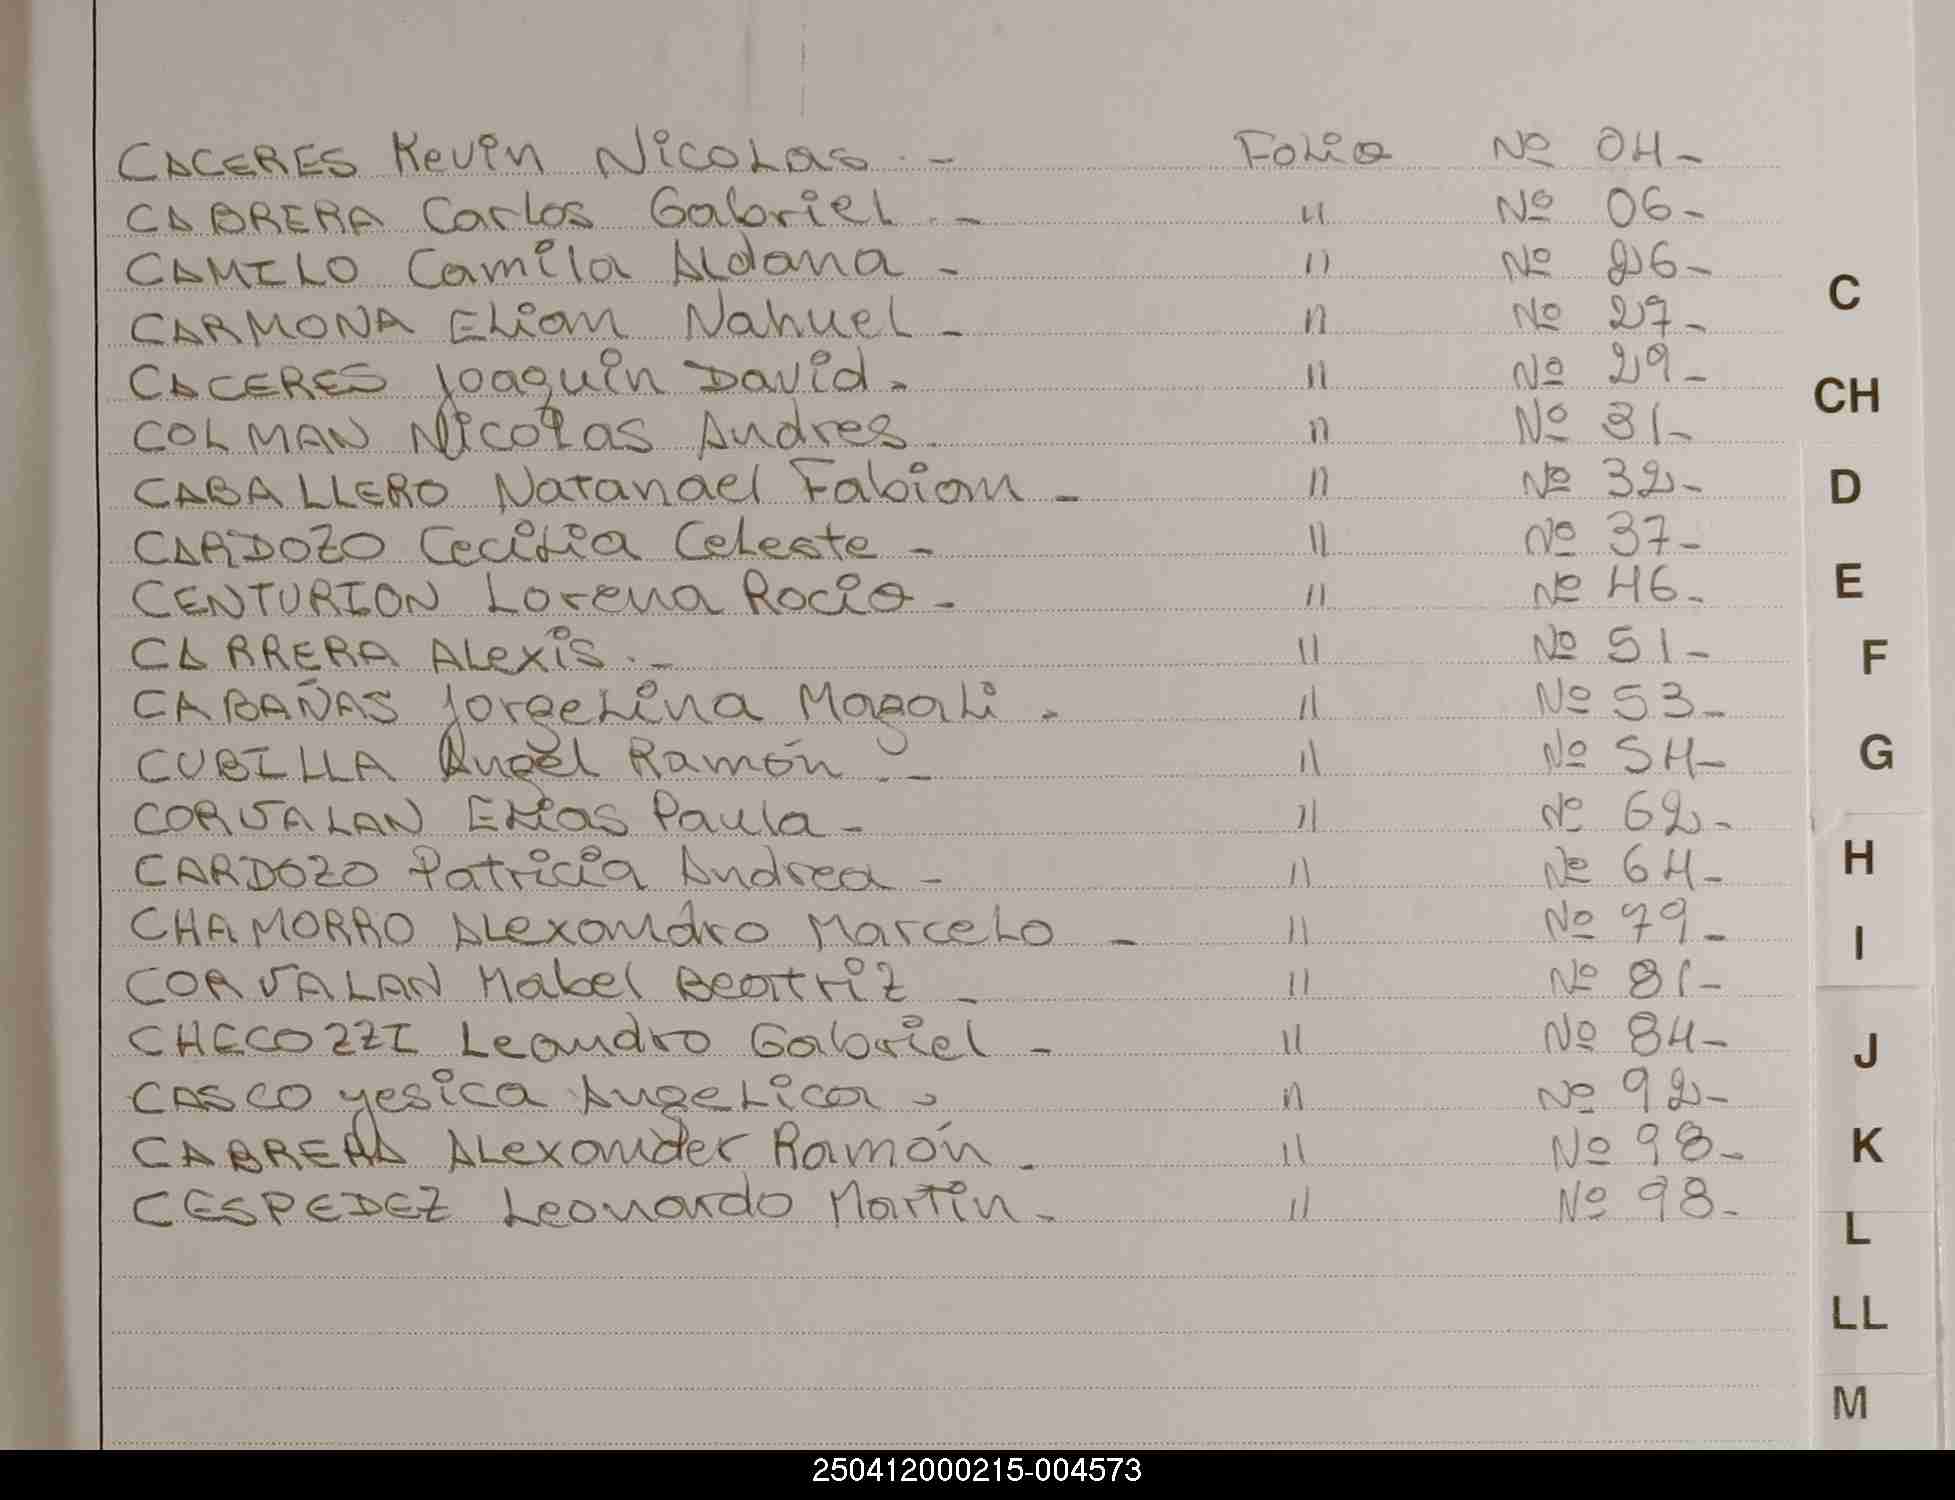 CACERES Kevin Nicolas.- Folio Nº 04-
CABRERA Carlos Gabriel.- " Nº 06-
CAMILO Camila Aldana - " Nº 26-
CARMONA Elian Nahuel - " Nº 27-
CACERES Joaquin David- " Nº 29-
COLMAN Nicolas Andres. " Nº 31-
CABALLERO Natanael Fabian - " Nº 32-
CARDOZO Cecilia Celeste - " Nº 37-
CENTURION Lorena Rocio- " Nº 46-
CABRERA Alexis.- " Nº 51-
CABAÑAS Jorgelina Magali - " Nº 53-
CUBILLA Angel Ramón.- " Nº 54-
CORVALAN Elias Paula- " Nº 62-
CARDOZO Patricia Andrea - " Nº 64-
CHAMORRO Alexandro Marcelo - " Nº 79-
CORVALAN Mabel Beatriz - " Nº 81-
CHECOZZI Leandro Gabriel - " Nº 84-
CASCO yesica Angelica - " Nº 92-
CABRERA Alexander Ramón - " Nº 98-
CESPEDEZ Leonardo Martin - " Nº 98-
C
CH
D
E
F
G
H
I
J
K
L
LL
M
250412000215-004573